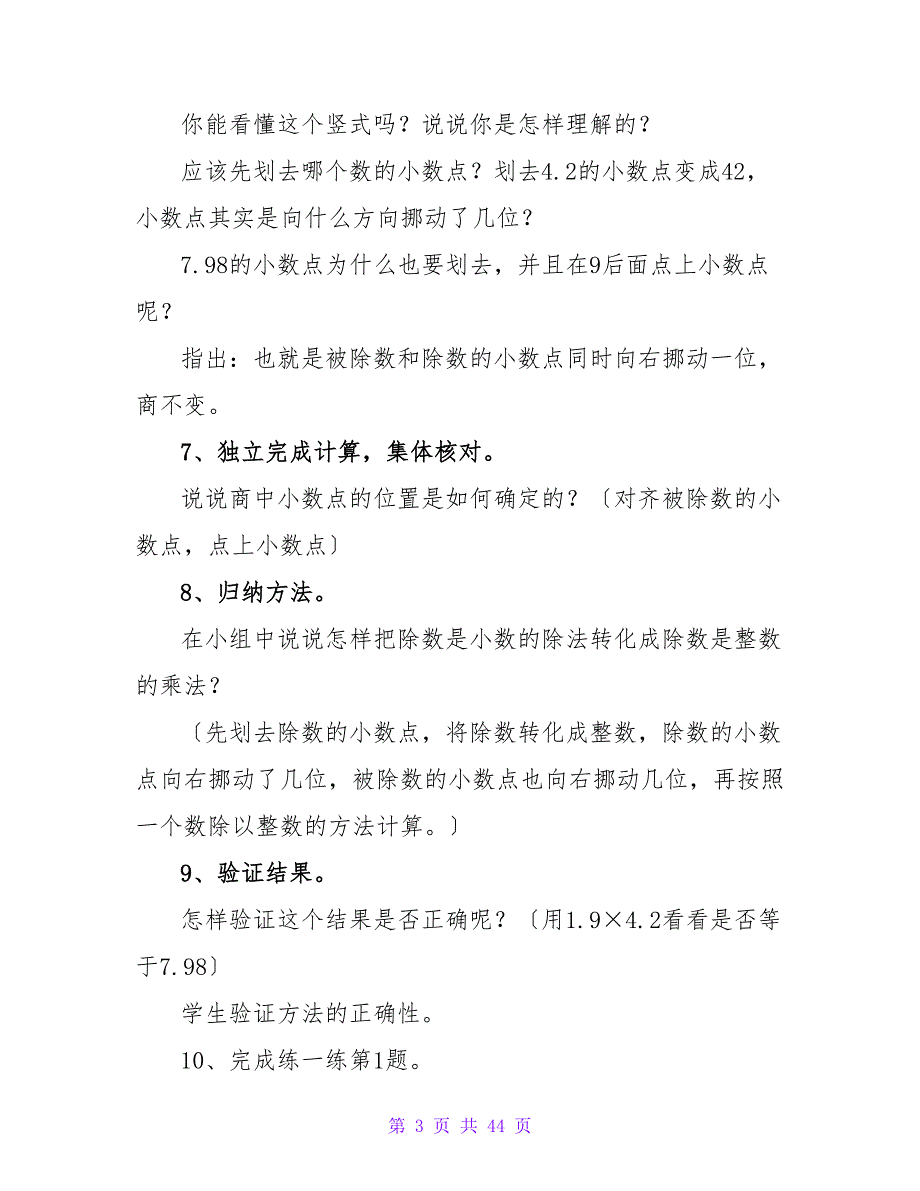 你能看懂这个竖式吗？说说你是怎样理解的？
应该先划去哪个数的小数点？划去4.2的小数点变成42，
小数点其实是向什么方向挪动了几位？
7.98的小数点为什么也要划去，并且在9后面点上小数点
呢？
指出：也就是被除数和除数的小数点同时向右挪动一位，
商不变。
7、独立完成计算，集体核对。
说说商中小数点的位置是如何确定的？〔对齐被除数的小
数点，点上小数点〕
8、归纳方法。
在小组中说说怎样把除数是小数的除法转化成除数是整数
的乘法？
〔先划去除数的小数点，将除数转化成整数，除数的小数
点向右挪动了几位，被除数的小数点也向右挪动几位，再按照
一个数除以整数的方法计算。〕
9、验证结果。
怎样验证这个结果是否正确呢？〔用1.9×4.2看看是否等
于7.98〕
学生验证方法的正确性。
10、完成练一练第1题。
第 3 页 共 44 页